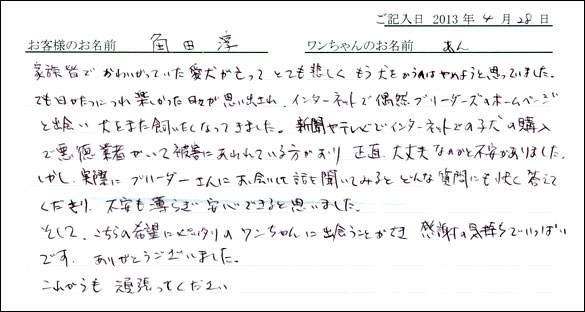 ご記入日 2013 年 4 月 28 日
お客様のお名前 角田 淳 ワンちゃんのお名前 あん
家族皆で かわいがっていた愛犬が亡って とても悲しく もう犬をかうのはやめようと思っていました。
でも日がたつにつれ 楽しかった日々が思い出され、インターネットで偶然ブリーダーズのホームページ
と出会い 犬をまた飼いたくなってきました。 新聞やテレビでインターネットでの子犬の購入
で悪徳業者がいて被害にあわれている方がおり 正直、大丈夫なのかと不安がありました。
しかし、実際に ブリーダーさんに お会いして 話を聞いてみると どんな質問にも快く答えて
くださり、不安も薄らぎ 安心できると思いました。
そして、こちらの希望にピッタリの ワンちゃんに出会うことができ 感謝の気持ちでいっぱい
です。 ありがとうございました。
これからも 頑張ってください